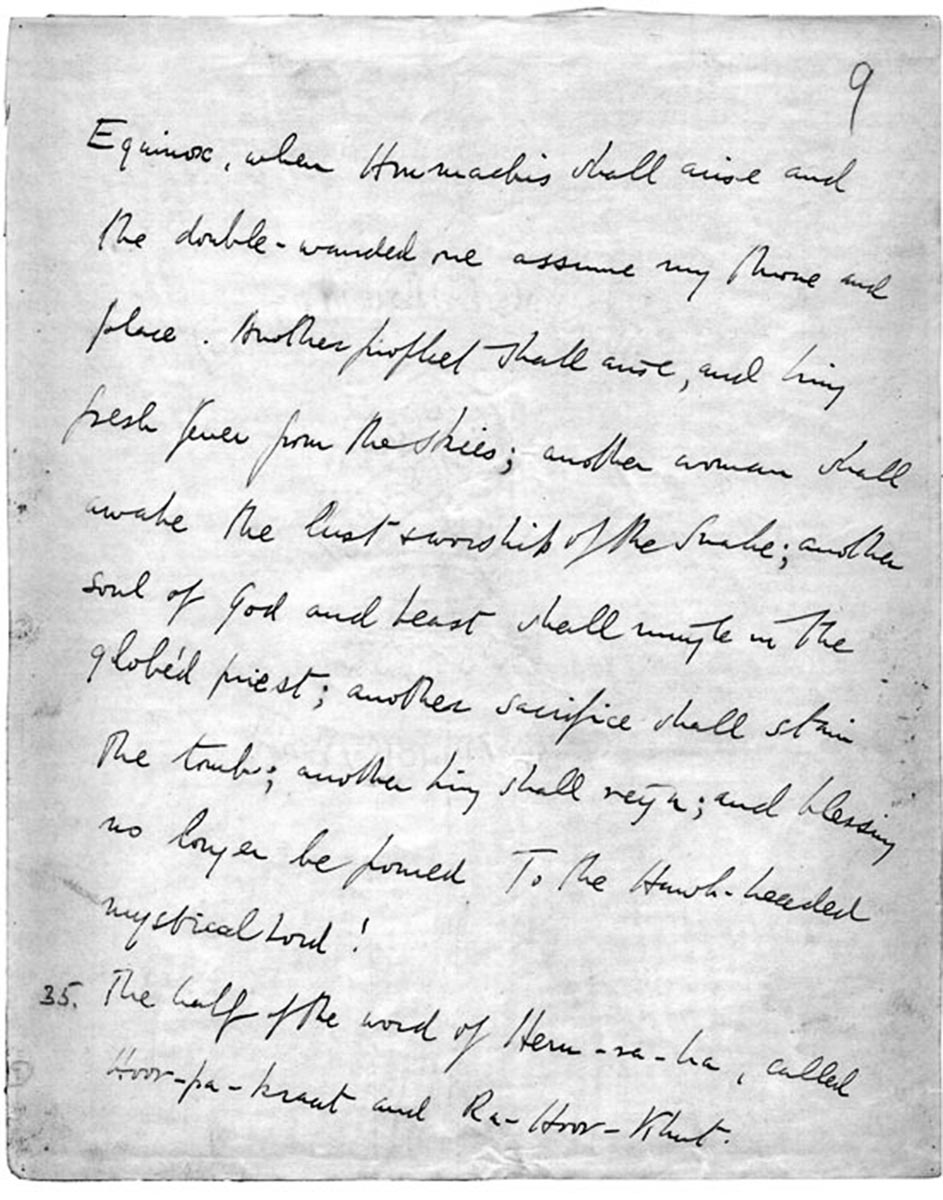 9
Equinox, when Hrumachis shall arise and
the double-wanded one assume my throne and
place. Another prophet shall arise, and bring
fresh fever from the skies; another woman shall
awake the lust & worship of the Snake; another
soul of God and beast shall mingle in the
globèd priest; another sacrifice shall stain
the tomb; another king shall reign; and blessing
no longer be poured To the Hawk-headed
mystical Lord!
35. The half of the word of Heru-ra-ha, called
Hoor-pa-kraat and Ra-Hoor-Khut.